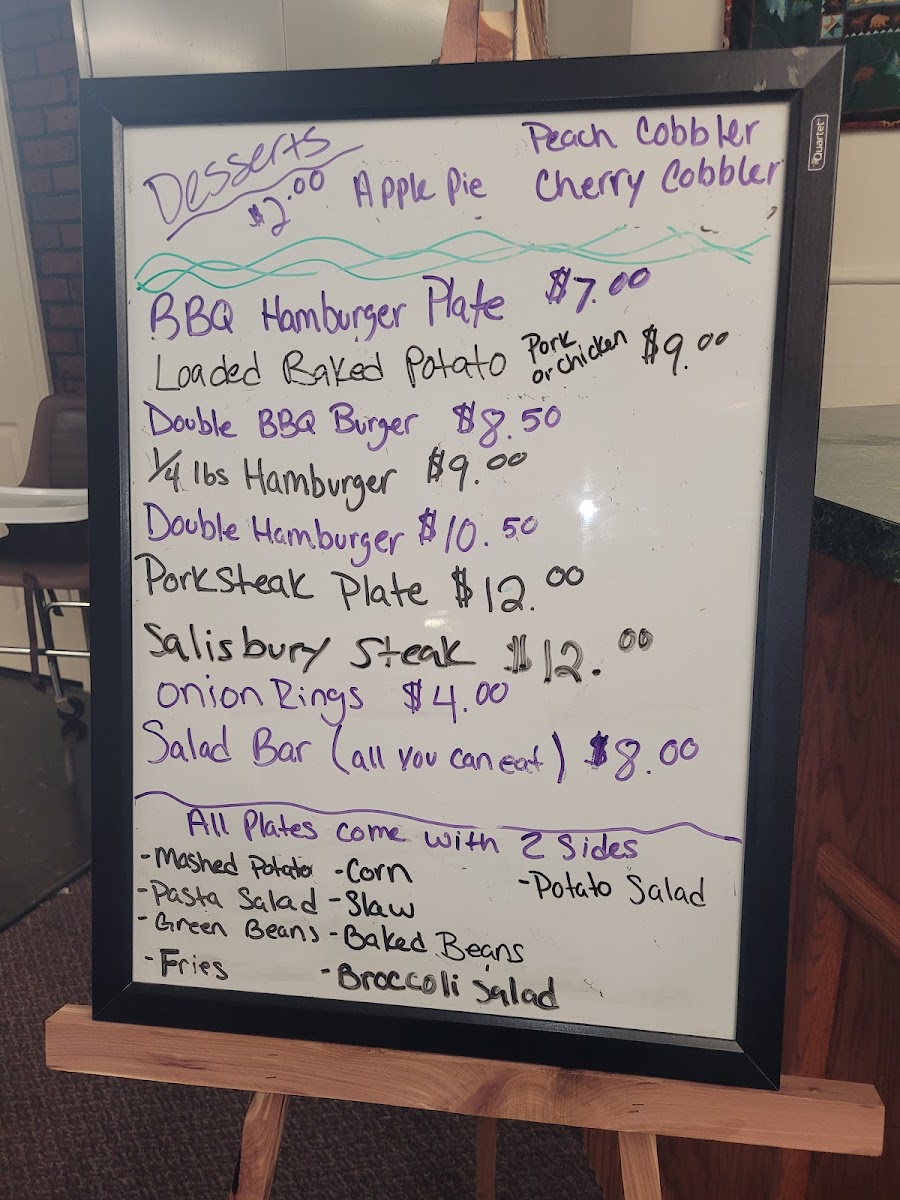 Desserts
$2.00
Apple Pie
Peach Cobbler
Cherry Cobbler
BBQ Hamburger Plate $7.00
Loaded Baked Potato Pork or chicken $9.00
Double BBQ Burger $8.50
1/4 lbs Hamburger $9.00
Double Hamburger $10.50
Porksteak Plate $12.00
Salisbury Steak $12.00
Onion Rings $4.00
Salad Bar (all you can eat) $8.00
All Plates come with 2 Sides
-Mashed Potato -Corn -Potato Salad
-Pasta Salad -Slaw
-Green Beans -Baked Beans
-Fries -Broccoli Salad
Quartet